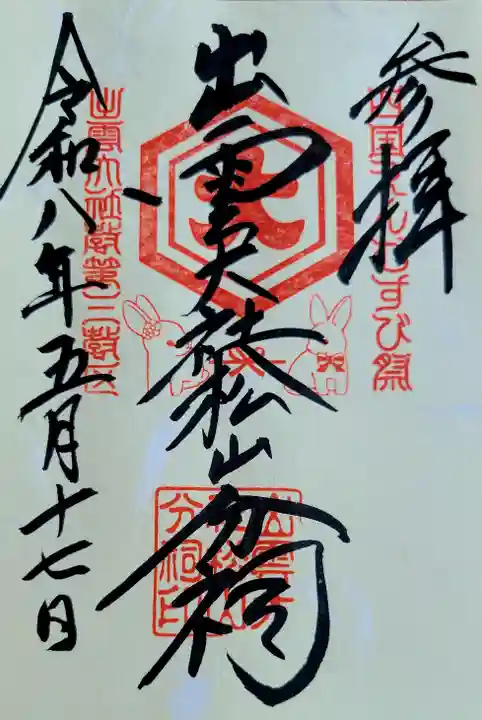 参拝
四国えんむすび祭
出雲大社松山分祠
大
出雲大社松山分祠印
令和八年五月十七日
出雲大社教第三教区